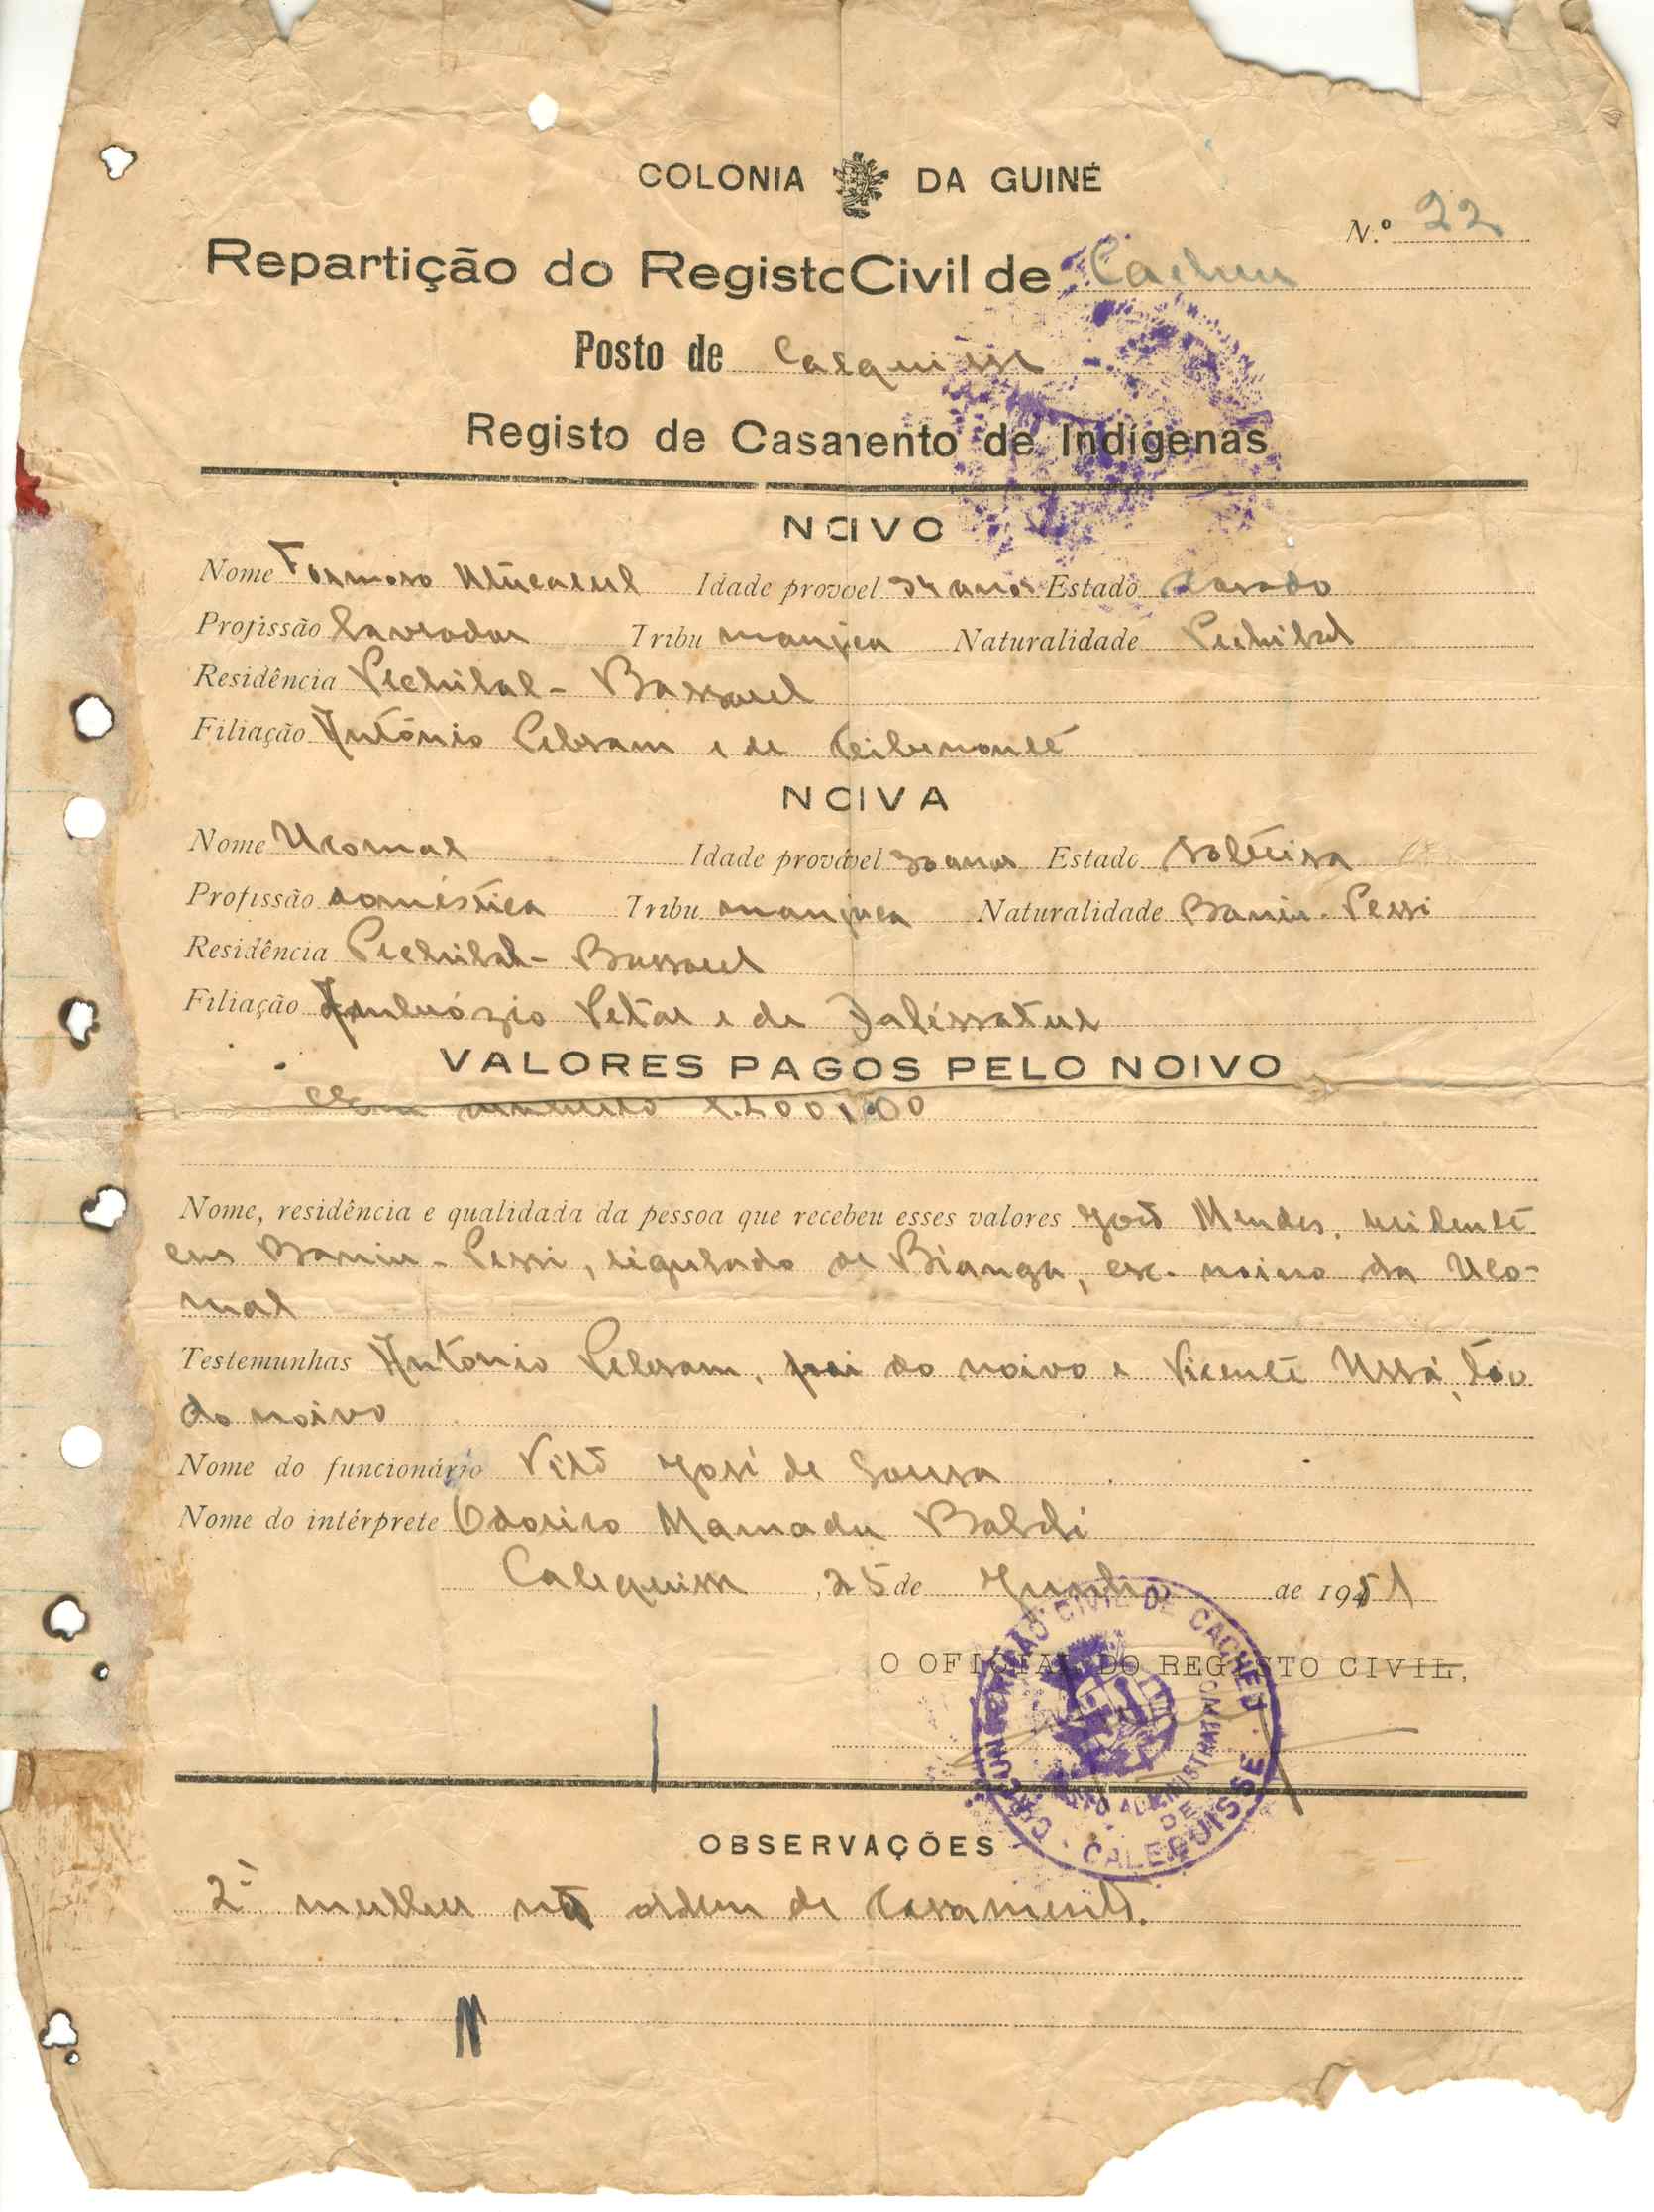 COLONIA DA GUINÉ
N.º 22
Repartição do Registo Civil de Cacheu
Posto de Calequisse
Registo de Casamento de Indígenas
NOIVO
Nome Formoso Idade provável anos Estado casado
Profissão lavrador Tribu manjaca Naturalidade Pechilal
Residência Pechilal - Bassarel
Filiação António e de
NOIVA
Nome Ucomal Idade provável 30 anos Estado solteira
Profissão doméstica Tribu manjaca Naturalidade
Residência Pechilal - Bassarel
Filiação Ambrózio e de
VALORES PAGOS PELO NOIVO
Em
Nome, residência e qualidade da pessoa que recebeu esses valores José Mendes, residente
em regulado de Bianga, ex-noivo da Uco-
mal
Testemunhas António pai do noivo e Vicente tio
do noivo
Nome do funcionário José de Sousa
Nome do intérprete Odorico Mamadu Baldé
Calequisse, 25 de Junho de 1951
O OFICIAL DO REGISTO CIVIL,
CIRCUNSCRIÇÃO CIVIL DE CACHEU
POSTO ADMINISTRATIVO DE
CALEQUISSE
OBSERVAÇÕES
2ª mulher na ordem de casamento.